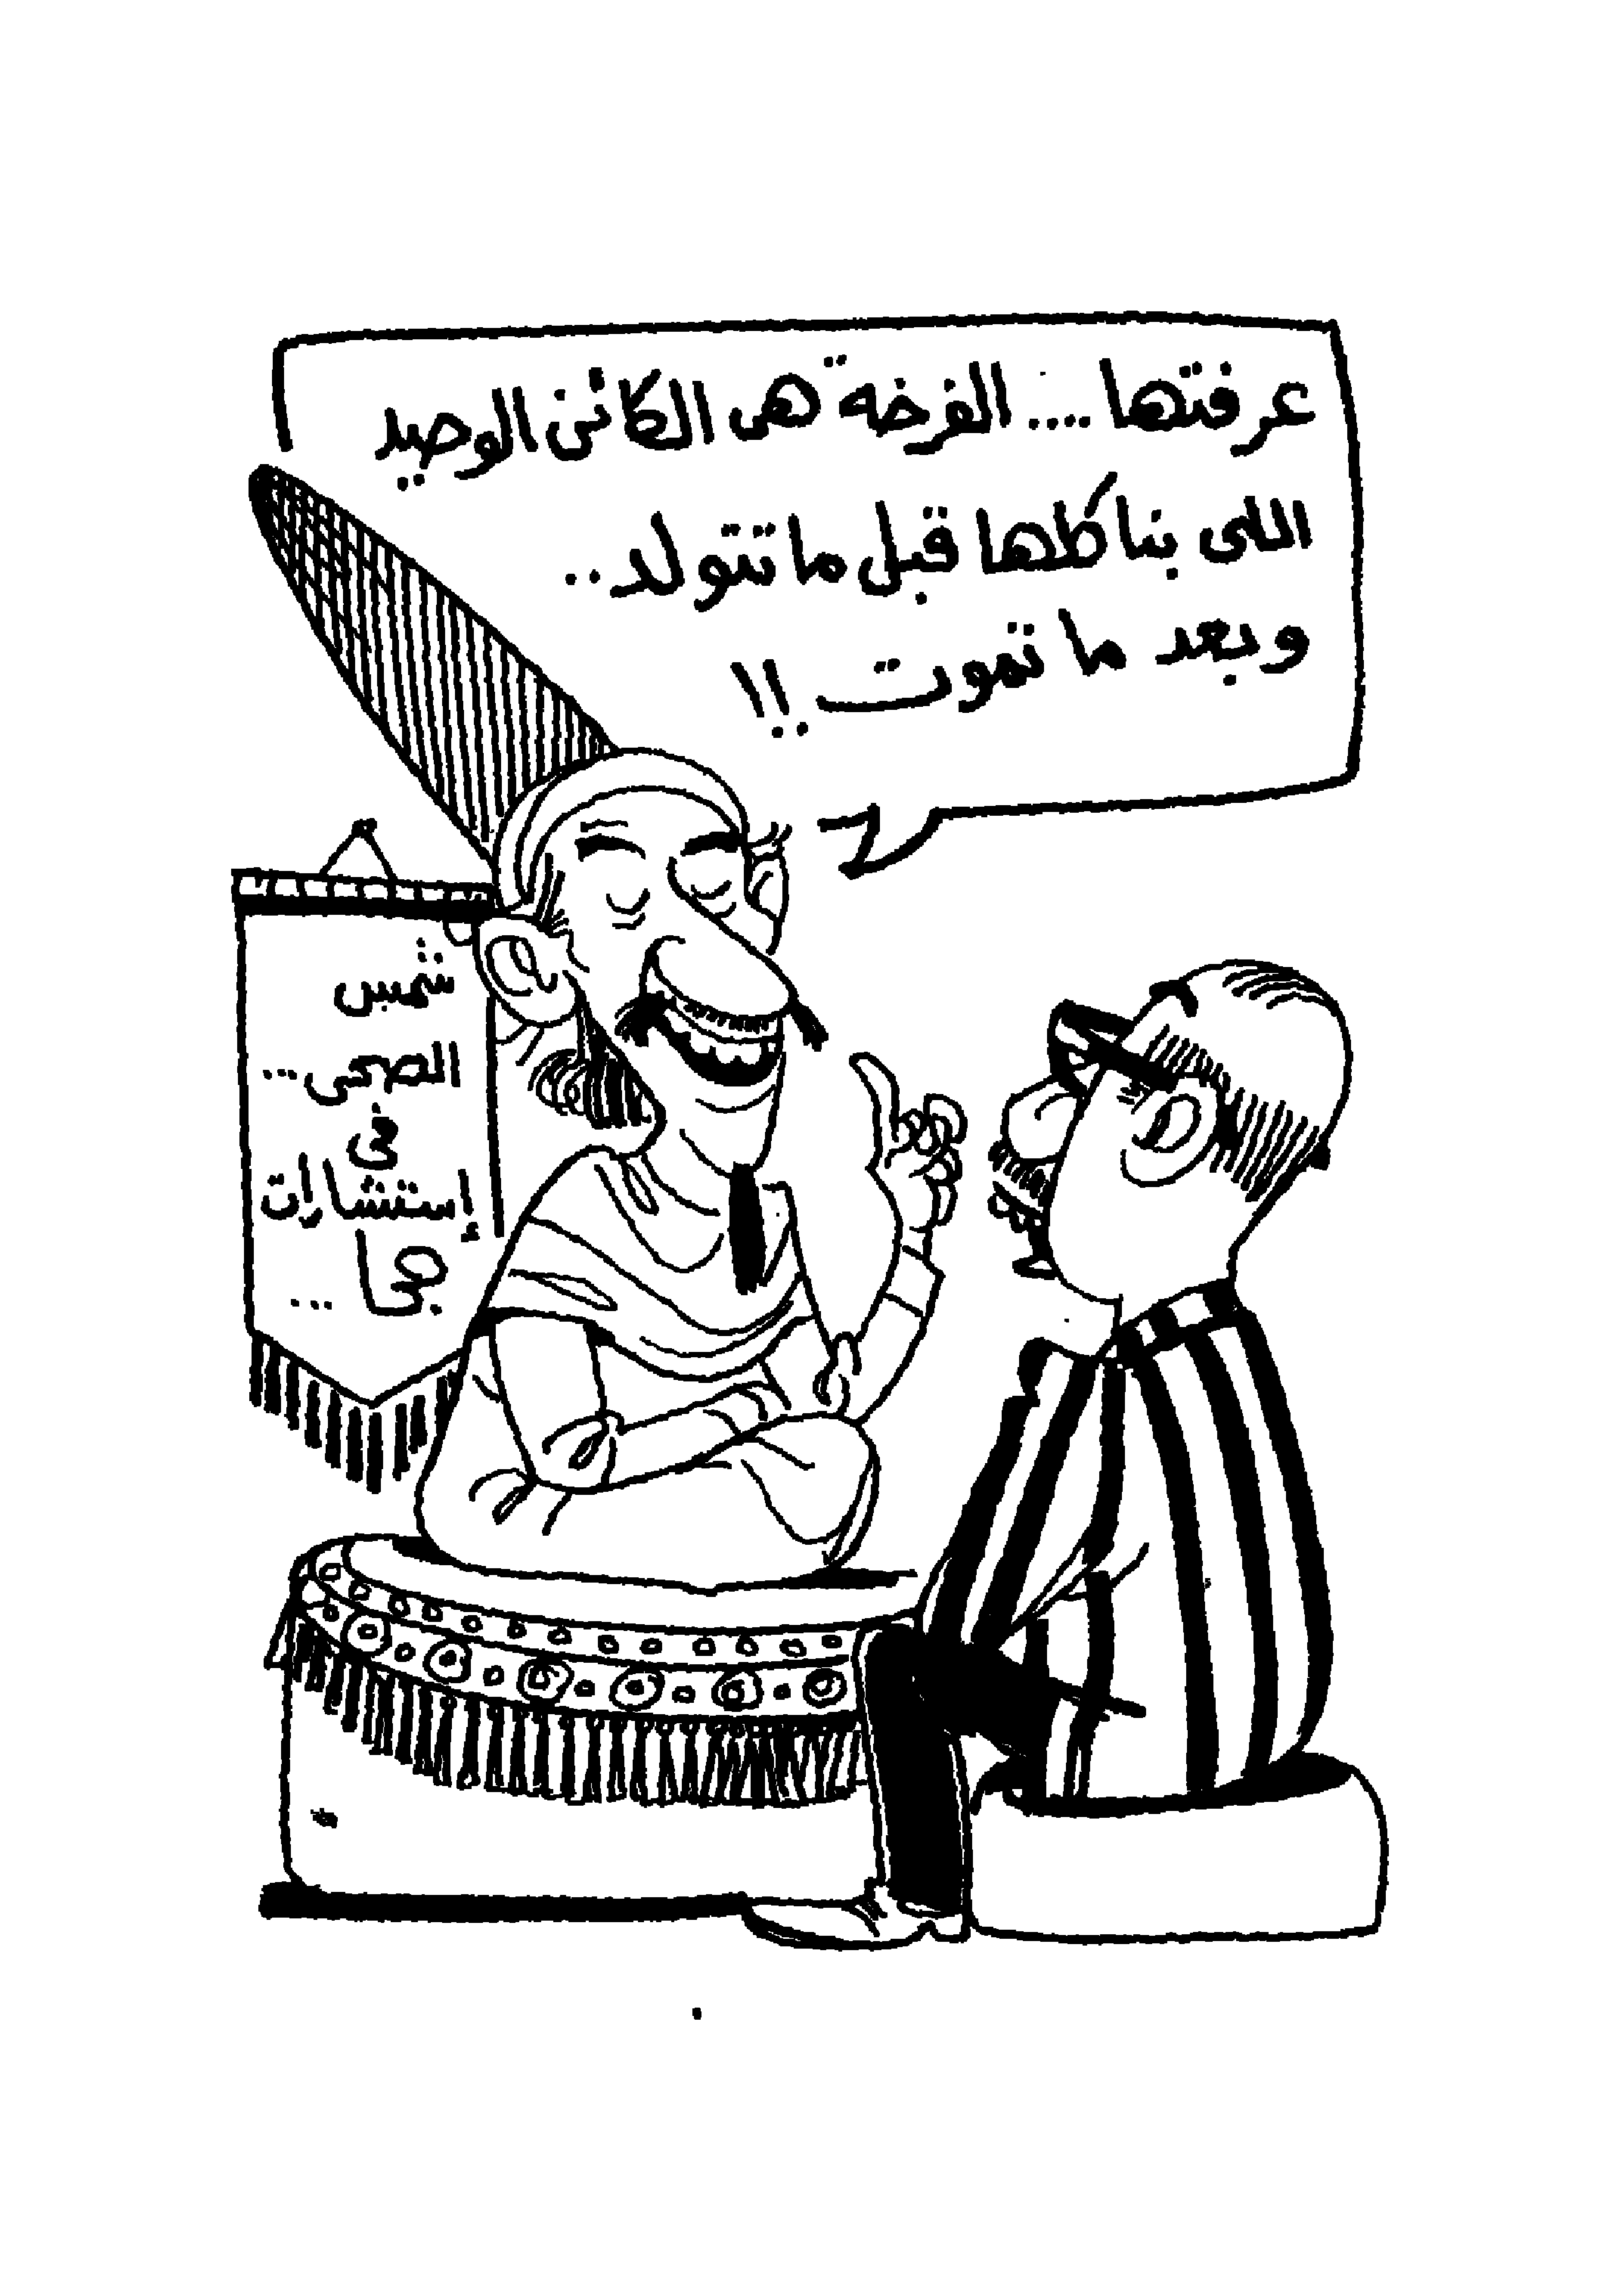 عرفتها .... الفرخة هى الكائن الوحيد
اللى بناكلها قبل ما تتولد ..
وبعد ما تموت !!
شمس
الضحى ...
فى
إستشارات
جحا ...